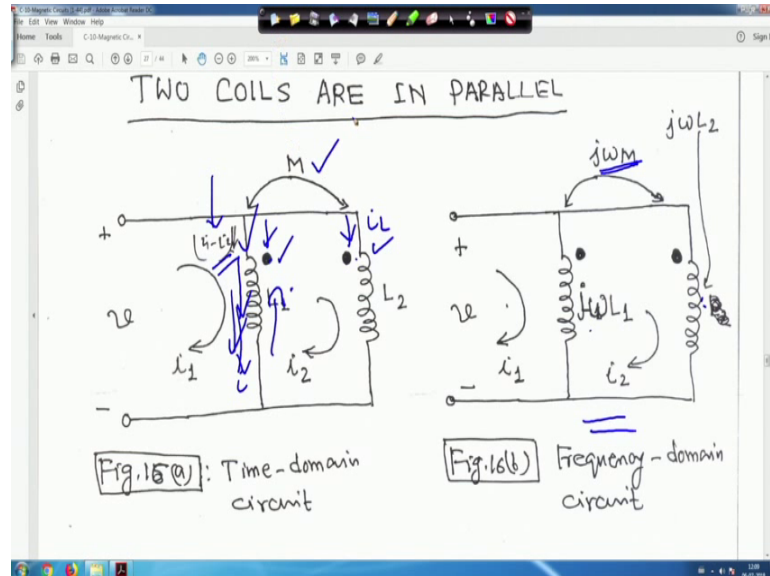 C-10-Magnetic Circuits (1-44).pdf - Adobe Acrobat Reader DC
File Edit View Window Help
Home Tools C-10-Magnetic Cir... × Sign
27 / 44 200%
TWO COILS ARE IN PARALLEL
jωL2
M jωM
+ (i1-i2) i2 +
v L2 v jωL1
i1 i2 i1 i2
- -
Fig.16(a): Time-domain
circuit
Fig.16(b) Frequency-domain
circuit
12:09